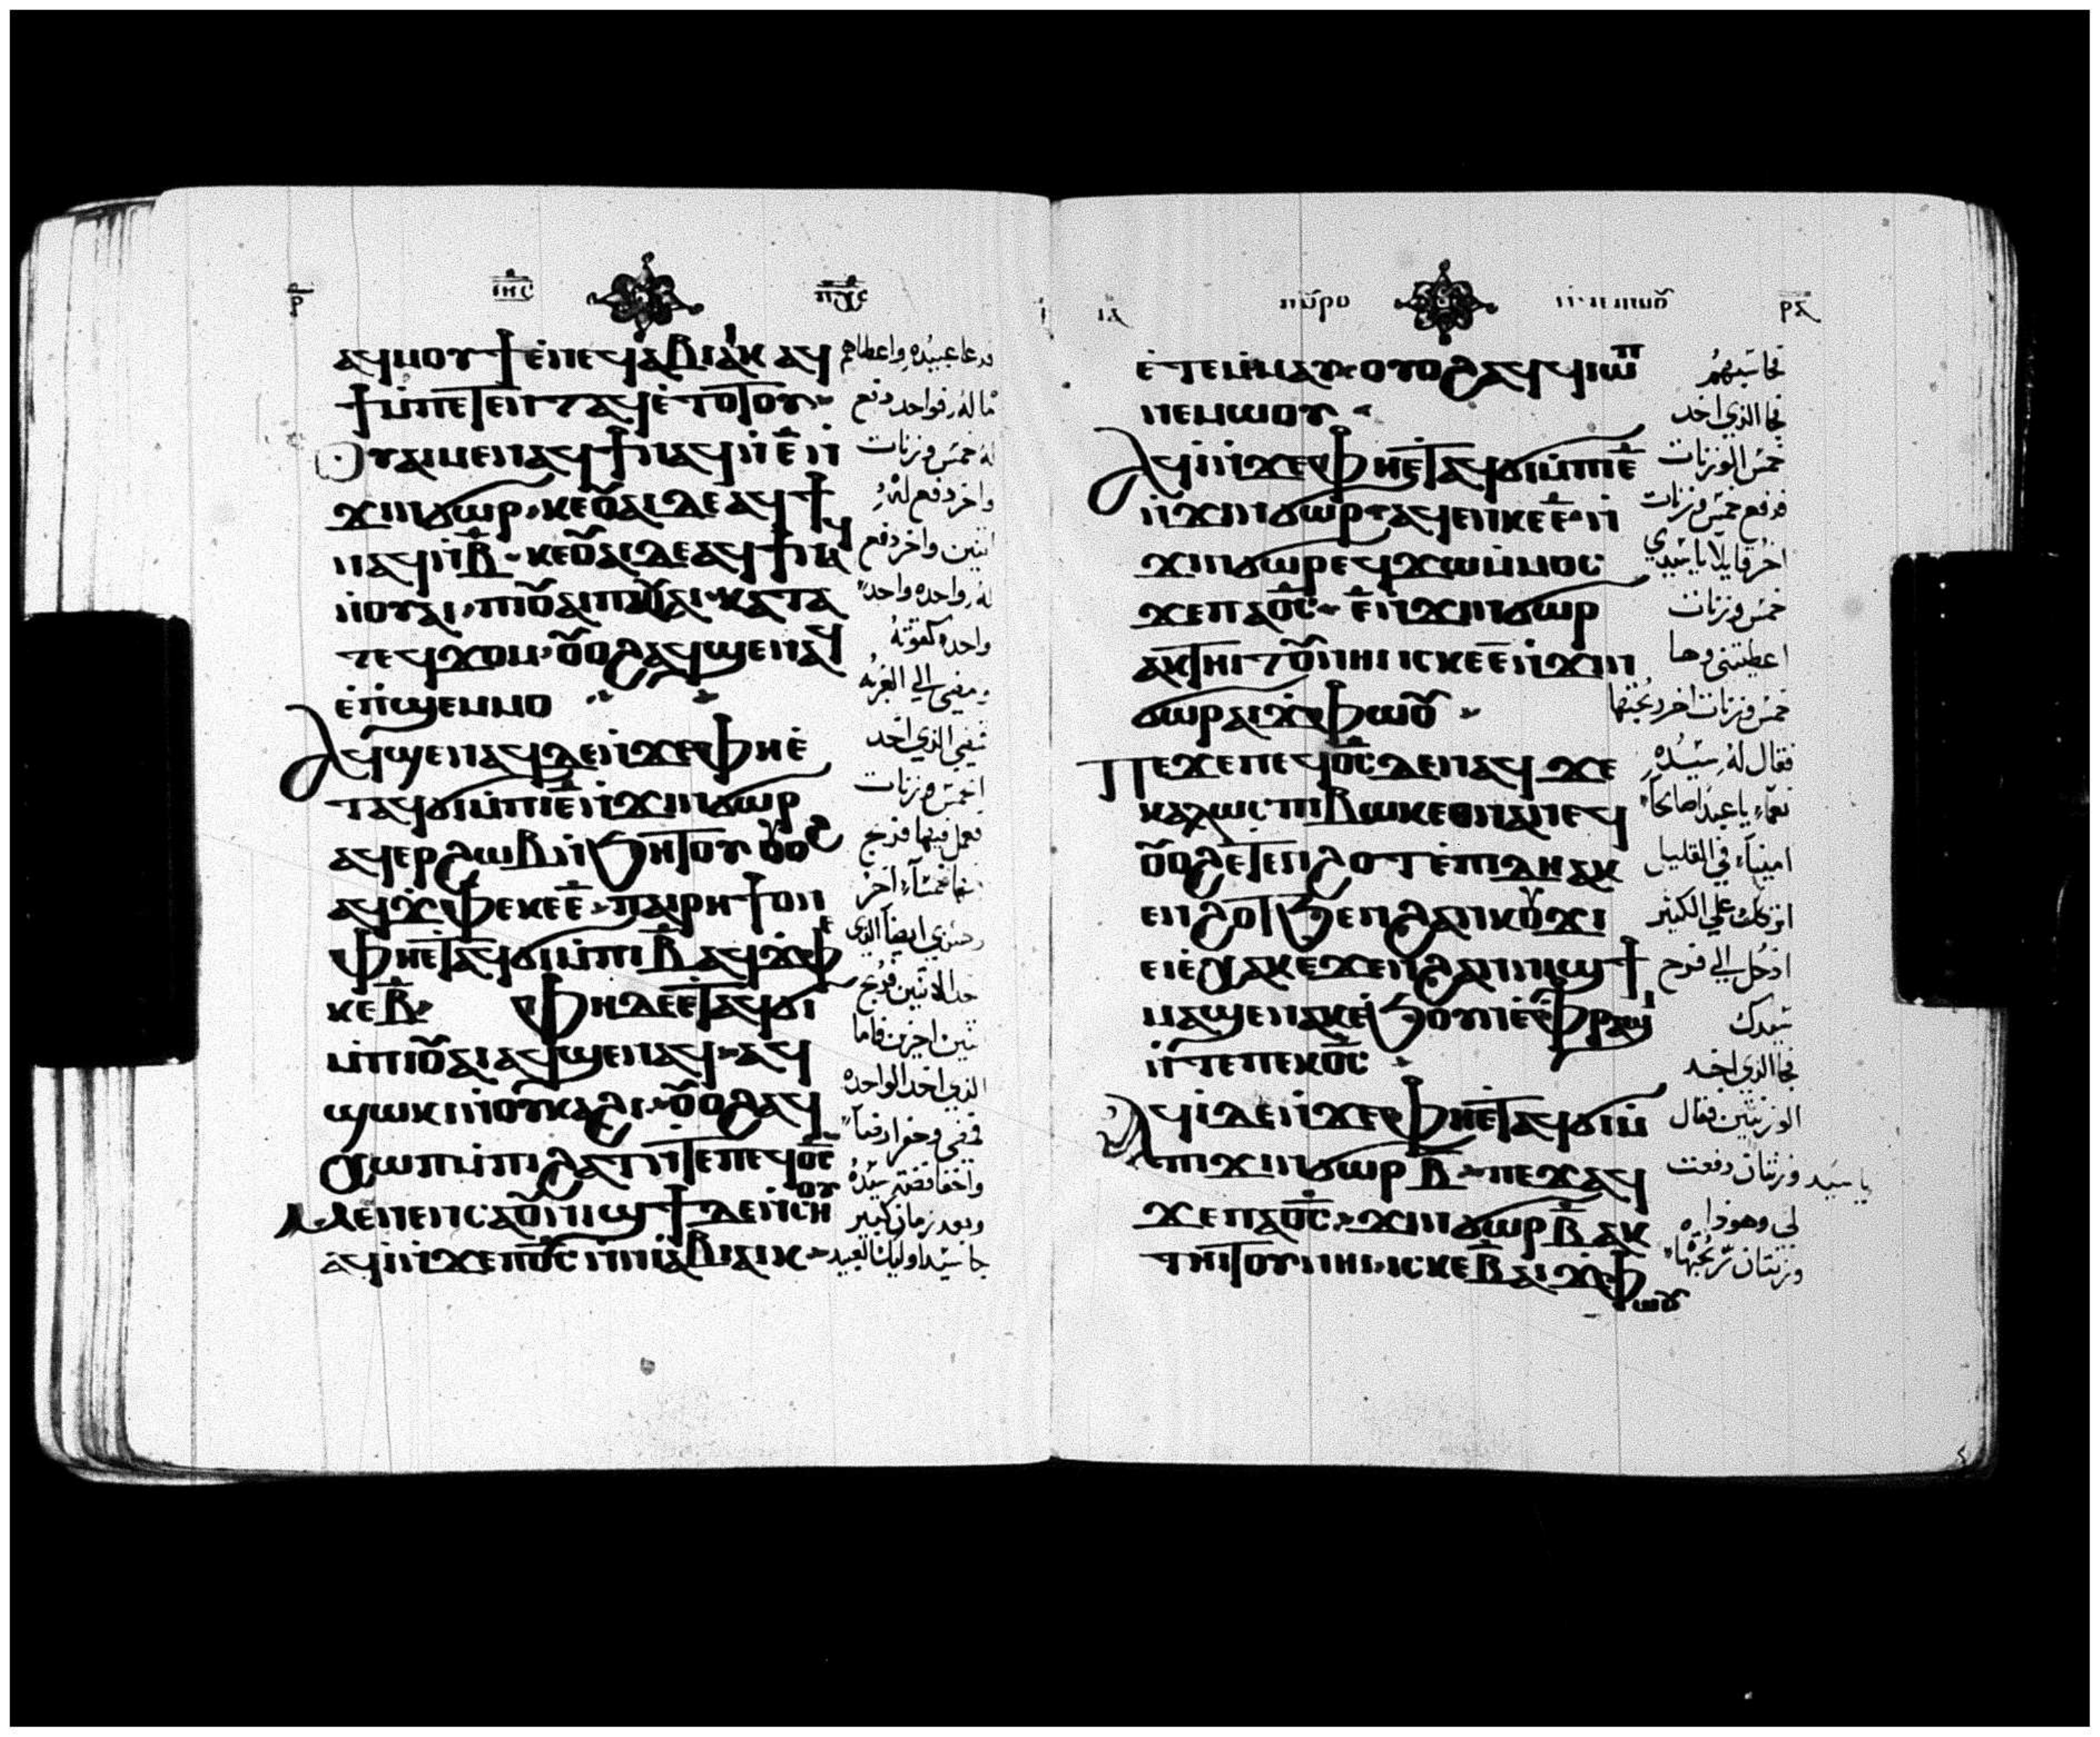 ⲣ̅ ⲓⲏ̅ⲥ̅ ⲡ̅ⲭ̅ⲥ̅
ⲁϥⲙⲟⲩϯⲉ̀ⲛⲉϥⲁ̀ⲃⲓⲁⲓⲕ ⲁϥ
ϯⲙ̀ⲡⲉⲧⲉⲛⲧⲁϥⲉ̀ⲧⲟⲧⲟⲩ
ⲟⲩⲁⲓⲙⲉⲛⲁϥϯⲛⲁϥⲛ̀ⲉ̅ⲛ̀
ϫⲓⲛϭⲱⲣ ⲕⲉⲟⲩⲁⲓⲇⲉⲁϥϯ
ⲛⲁϥⲛ̀ⲃ̅ ⲕⲉⲟⲩⲁⲓⲇⲉⲁϥϯⲛⲁϥ
ⲛ̀ⲟⲩⲁⲓ ⲡⲓⲟⲩⲁⲓⲡⲓⲟⲩⲁⲓ ⲕⲁⲧⲁ
ⲧⲉϥϫⲟⲙ ⲟⲩⲟϩⲁϥϣⲉⲛⲁϥ
ⲉ̀ⲡ̀ϣⲉⲙⲙⲟ
ⲁϥϣⲉⲛⲁϥⲇⲉⲛ̀ϫⲉⲫⲏⲉ̀
ⲧⲁϥϭⲓⲙ̀ⲡⲓⲉ̅ⲛ̀ϫⲓⲛϭⲱⲣ
ⲁϥⲉⲣϩⲱⲃⲛ̀ϧⲏⲧⲟⲩ ⲟⲩⲟϩ
ⲁϥϫⲫⲉⲕⲉⲉ̅ ⲡⲁⲓⲣⲏϯⲟⲛ
ⲫⲏⲉⲧⲁϥϭⲓⲙ̀ⲡⲓⲃ̅ ⲁϥϫⲫⲉ
ⲕⲉⲃ̅ ⲫⲏⲇⲉⲉⲧⲁϥϭⲓ
ⲙ̀ⲡⲓⲟⲩⲁⲓⲁϥϣⲉⲛⲁϥ ⲁϥ
ϣⲱⲕⲛ̀ⲟⲩⲕⲁϩⲓ ⲟⲩⲟϩⲁϥ
ⲭⲱⲡⲙ̀ⲡⲓϩⲁⲧⲛ̀ⲧⲉⲡⲉϥⲟ̅ⲥ̅
ⲙⲉⲛⲉⲛⲥⲁⲟⲩⲛⲓϣϯⲇⲉⲛ̀ⲥⲏⲟⲩ
ⲁϥⲓ̀ⲛ̀ϫⲉⲡⲟ̅ⲥ̅ⲛ̀ⲛⲓⲁ̀ⲃⲓⲁⲓⲕ
فدعا عبيده واعطاهم
ماله فواحد دفع
له خمس وزنات
واخر دفع له
اثنين واخر دفع
له واحده واحد
واحد كقوته
ومضى الى الغربه
فمضى الذي اخد
الخمس وزنات
فعمل فيها فربح
اخر
ايضا الذي
اخد الاثنين فربح
ثنين اخرين فاما
الذي اخد الواحده
فمضى وحفر ارضا
واخفا فضة سيده
وبعد زمان كبير
جا سيد اوليك العبيد
ⲓⲁ ⲡⲟⲩⲣⲟ ⲣⲁ
ⲉ̀ⲧⲉⲙ̀ⲙⲁⲩ ⲟⲩⲟϩⲁϥϥⲓⲱⲡ
ⲛⲉⲙⲱⲟⲩ
ⲁϥⲓ̀ⲛ̀ϫⲉⲫⲏⲉⲧⲁϥϭⲓⲙ̀ⲡⲓⲉ̅
ⲛ̀ϫⲓⲛϭⲱⲣ ⲁϥⲉⲛⲕⲉⲉ̅ ⲛ̀
ϫⲓⲛϭⲱⲣⲉϥϫⲱⲙ̀ⲙⲟⲥ
ϫⲉⲡⲁⲟ̅ⲥ̅ ⲉ̅ⲛ̀ϫⲓⲛϭⲱⲣ
ⲁⲕⲧⲏⲓⲧⲟⲩⲛⲏⲓ ⲓⲥⲕⲉⲉ̅ⲛ̀ϫⲓⲛ
ϭⲱⲣⲁⲓϫⲫⲱⲟⲩ
ⲡⲉϫⲉⲡⲉϥⲟ̅ⲥ̅ⲇⲉⲛⲁϥ ϫⲉ
ⲕⲁⲗⲱⲥ ⲡⲓⲃⲱⲕⲉⲑⲛⲁⲛⲉϥ
ⲟⲩⲟϩⲉⲧⲉⲛϩⲟⲧ ⲉⲡⲓⲇⲏ ⲁⲕ
ⲉⲛϩⲟⲧϧⲉⲛϩⲁⲛⲕⲟⲩϫⲓ
ⲉⲓⲉ̀ⲭⲁⲕⲉϫⲉⲛϩⲁⲛⲛⲓϣϯ
ⲙⲁϣⲉⲛⲁⲕⲉ̀ϧⲟⲩⲛⲉ̀ⲫⲣⲁϣⲓ
ⲛ̀ⲧⲉⲡⲉⲕⲟ̅ⲥ̅
ⲁϥⲓ̀ⲇⲉⲛ̀ϫⲉⲫⲏⲉⲧⲁϥϭⲓⲙ̀
ⲡⲓϫⲓⲛϭⲱⲣ ⲃ̅ ⲡⲉϫⲁϥ
ϫⲉⲡⲁⲟ̅ⲥ̅ ϫⲓⲛϭⲱⲣ ⲃ̅ ⲁⲕ
ⲧⲏⲓⲧⲟⲩⲛⲏⲓ ⲓⲥⲕⲉⲃ̅ ⲁⲓϫⲫ
ⲱⲟⲩ
فحاسبهم
فجا الذي اخد
خمس الوزنات
فدفع خمس وزنات
اخر قايلا يا سيدي
خمس وزنات
اعطيتني وها
خمس وزنات اخر ربحتها
فقال له سيده
نعم يا عبدا صالحا
امينا في القليل
على الكثير
ادخل الى فرح
سيدك
فجا الذي اخد
الوزنتين فقال
يا سيد وزنتان دفعت
لي وهوذا
وزنتان ربحتها